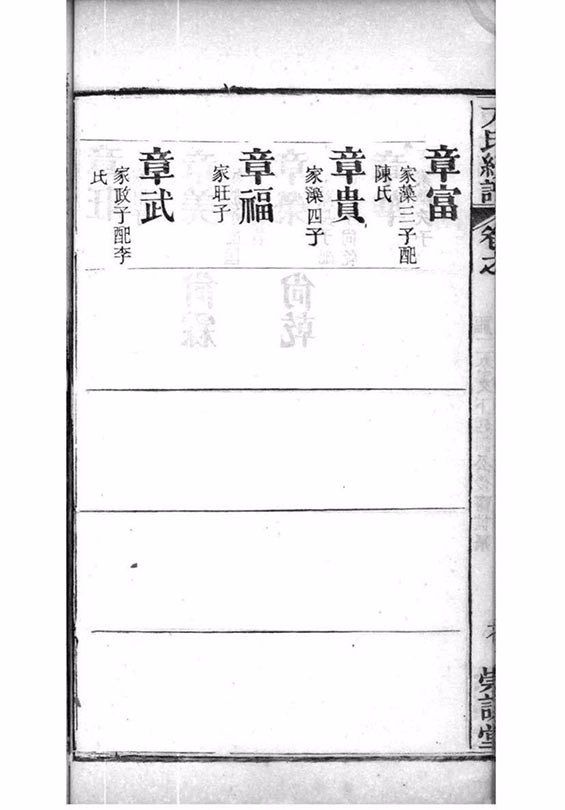 章富
家藻三子配
陳氏
章貴
家濼四子
章福
家旺子
章武
家政子配李
氏
氏續譜
卷之
崇誼堂